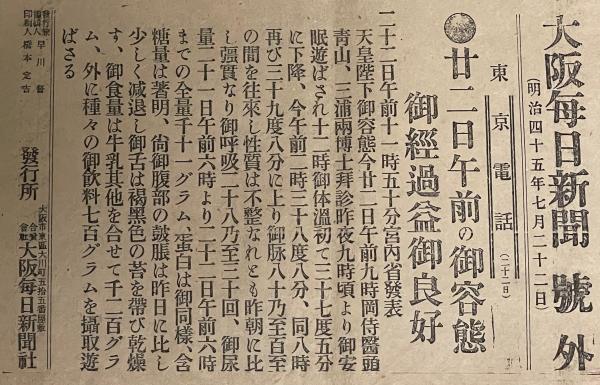 大阪毎日新聞 號外
(明治四十五年七月二十二日)
東京電話(二十二日)
◉廿二日午前の御容態
御經過益御良好
二十二日午前十一時五十分宮內省發表
天皇陛下御容態今廿二日午前九時岡侍醫頭
靑山、三浦兩博士拜診昨夜九時頃より御安
眠遊ばされ十二時御体溫初て三十七度五分
に下降、今午前二時三十八度八分、同八時
再び三十九度八分に上り御脉八十乃至百至
の間を往來し性質は不整なれども昨朝に比
し强實なり御呼吸二十八乃至三十回、御尿
量二十一日午前六時より二十二日午前六時
までの全量千十一グラム、蛋白は御同樣、含
糖量は著明、尙御腹部の鼓脹は昨日に比し
少しく減退し御舌は褐黑色の苔を帶び乾燥
す、御食量は牛乳其他を合せて千二百グラ
ム、外に種々の御飮料七百グラムを攝取遊
ばさる
發行兼編輯人 早川督
印刷人 橋本定吉
發行所 大阪市東區大川町五拾五番屋敷 合資會社 大阪每日新聞社